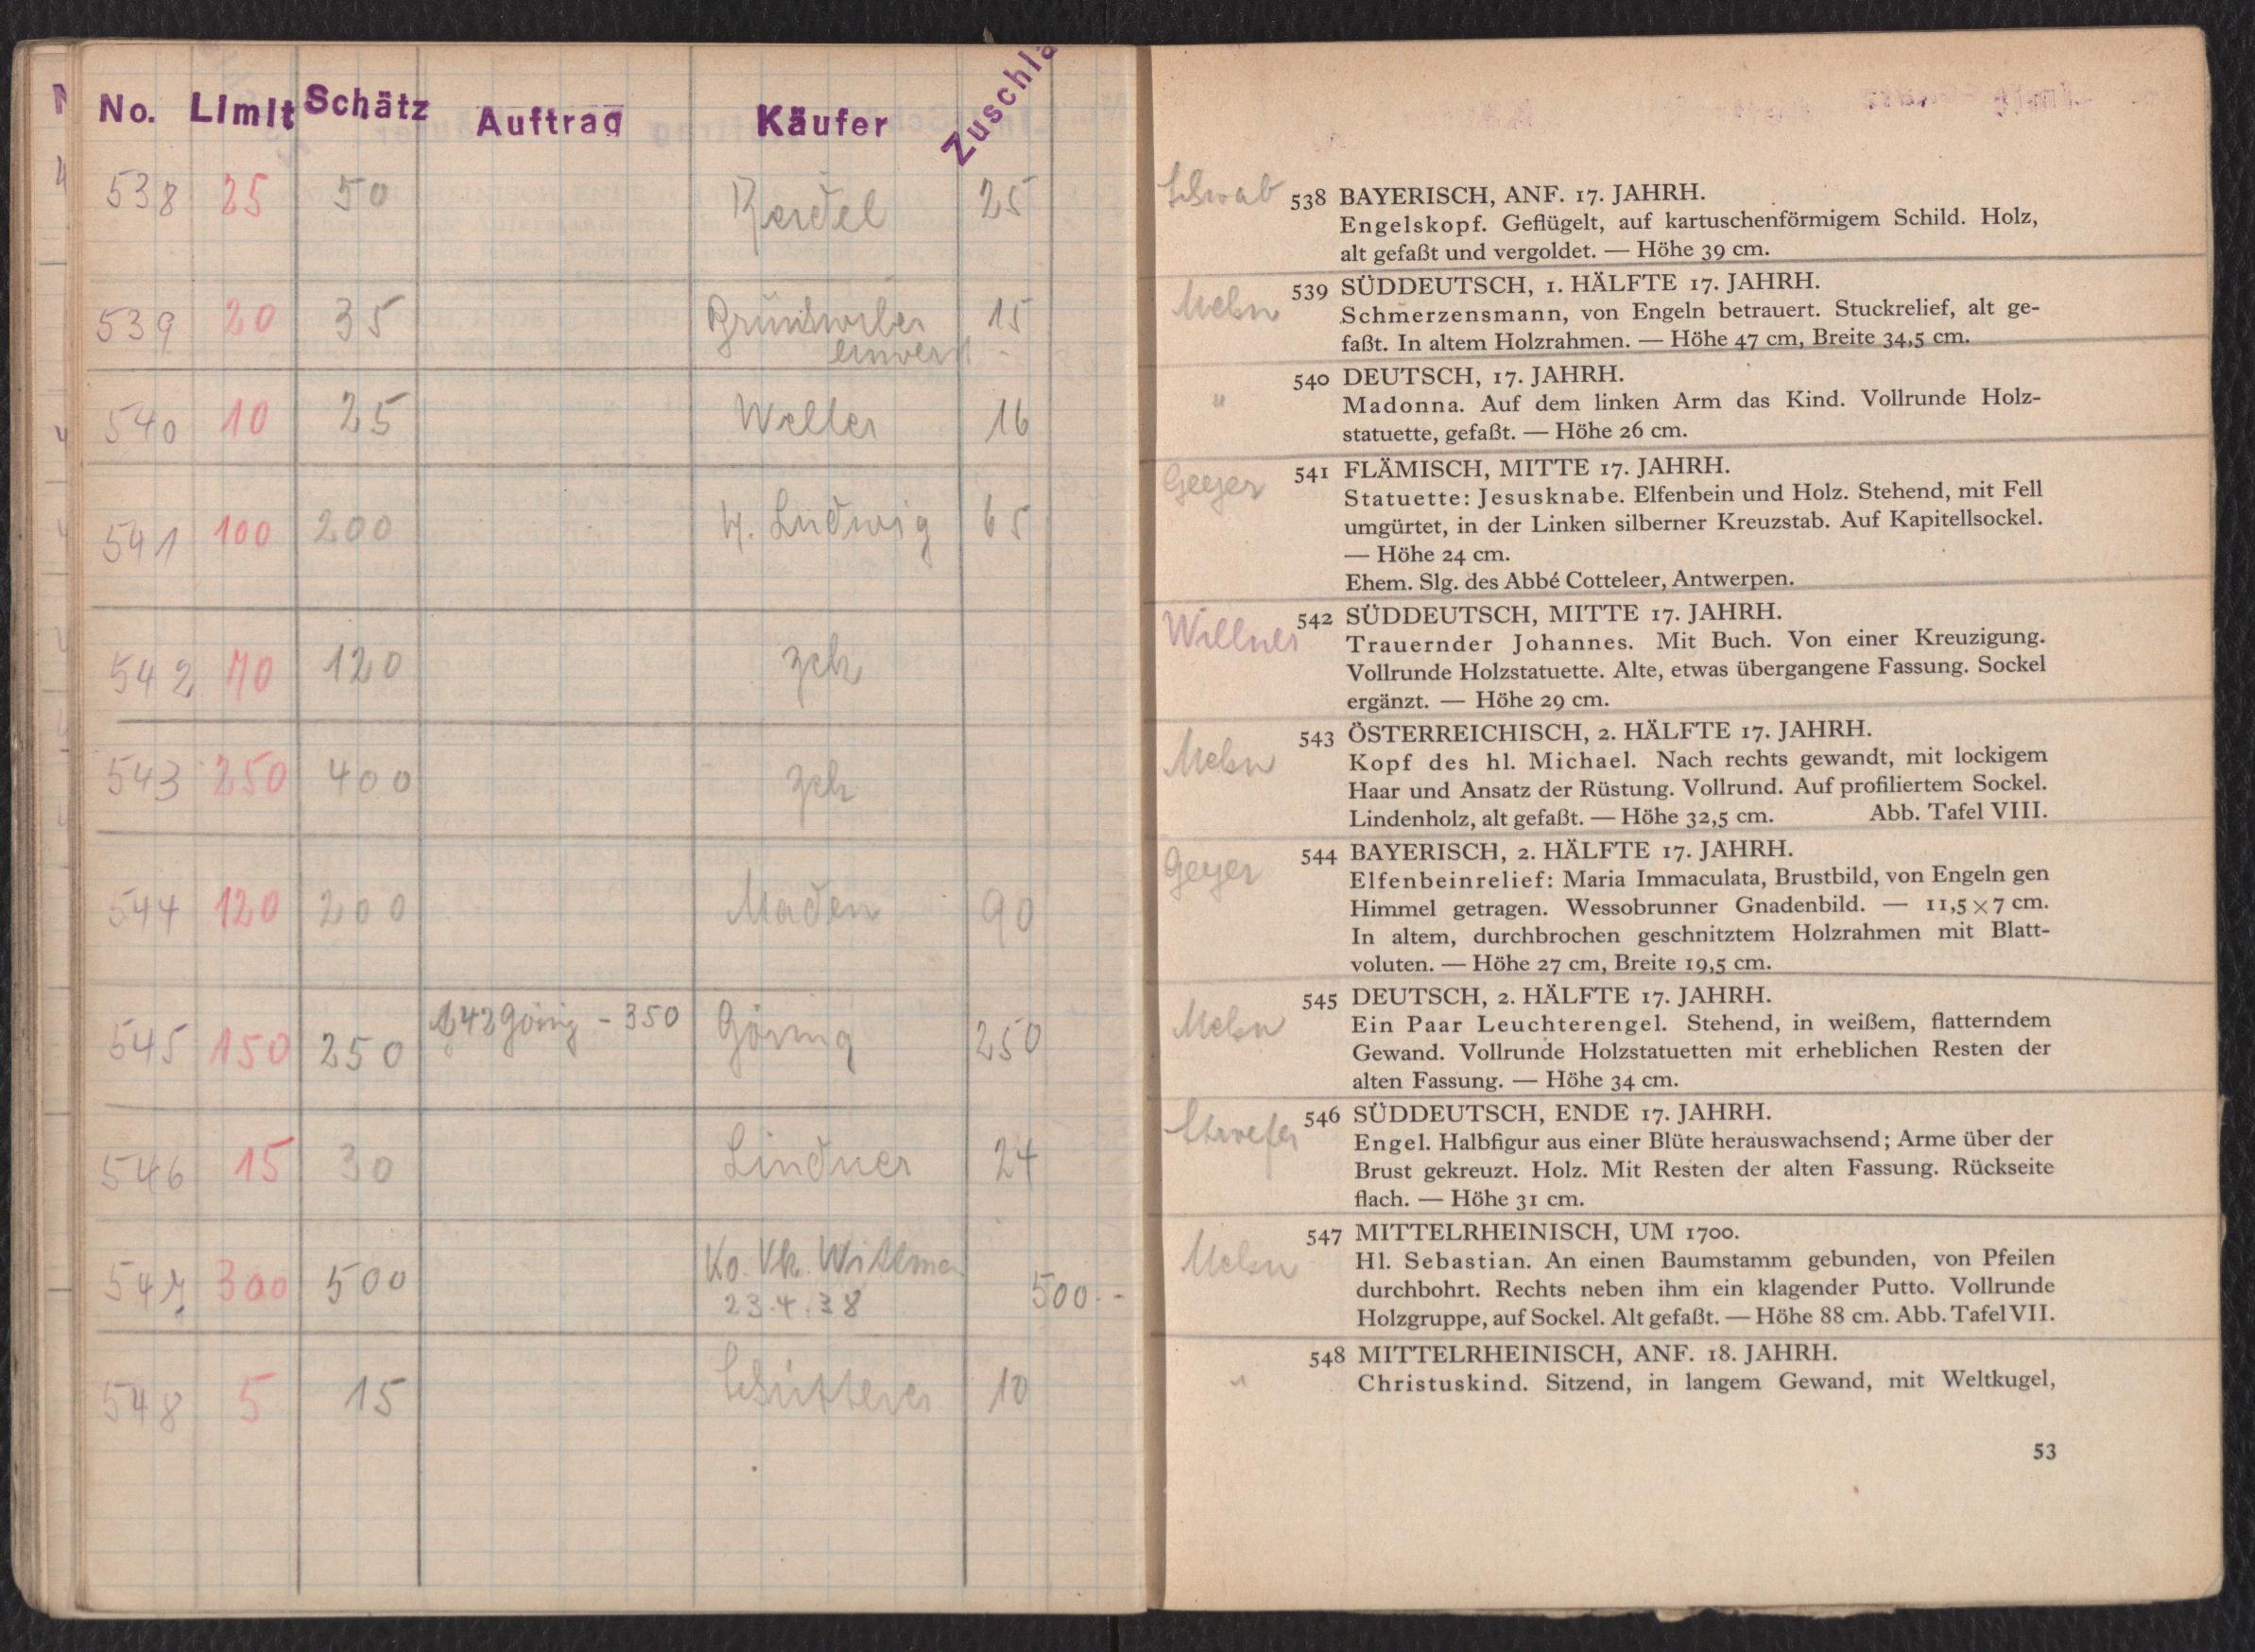 No. Limit Schätz Auftrag Käufer Zuschla
538 25 50 25
539 20 35 15
540 10 25 Welter 16
541 100 200 H. Ludwig 65
542 70 120 zch
543 250 400 zch
544 120 200 Maden 90
545 150 250 Göring - 350 Göring 250
546 15 30 Lindner 24
547 300 500 Ko. Vk.
23.4.38 500.-
548 5 15 10
Schwab
538 BAYERISCH, ANF. 17. JAHRH.
Engelskopf. Geflügelt, auf kartuschenförmigem Schild. Holz,
alt gefaßt und vergoldet. — Höhe 39 cm.
539 SÜDDEUTSCH, 1. HÄLFTE 17. JAHRH.
Schmerzensmann, von Engeln betrauert. Stuckrelief, alt ge-
faßt. In altem Holzrahmen. — Höhe 47 cm, Breite 34,5 cm.
540 DEUTSCH, 17. JAHRH.
Madonna. Auf dem linken Arm das Kind. Vollrunde Holz-
" statuette, gefaßt. — Höhe 26 cm.
Geyer
541 FLÄMISCH, MITTE 17. JAHRH.
Statuette: Jesusknabe. Elfenbein und Holz. Stehend, mit Fell
umgürtet, in der Linken silberner Kreuzstab. Auf Kapitellsockel.
— Höhe 24 cm.
Ehem. Slg. des Abbé Cotteleer, Antwerpen.
Willner
542 SÜDDEUTSCH, MITTE 17. JAHRH.
Trauernder Johannes. Mit Buch. Von einer Kreuzigung.
Vollrunde Holzstatuette. Alte, etwas übergangene Fassung. Sockel
ergänzt. — Höhe 29 cm.
543 ÖSTERREICHISCH, 2. HÄLFTE 17. JAHRH.
Kopf des hl. Michael. Nach rechts gewandt, mit lockigem
Haar und Ansatz der Rüstung. Vollrund. Auf profiliertem Sockel.
Lindenholz, alt gefaßt. — Höhe 32,5 cm. Abb. Tafel VIII.
Geyer
544 BAYERISCH, 2. HÄLFTE 17. JAHRH.
Elfenbeinrelief: Maria Immaculata, Brustbild, von Engeln gen
Himmel getragen. Wessobrunner Gnadenbild. — 11,5 × 7 cm.
In altem, durchbrochen geschnitztem Holzrahmen mit Blatt-
voluten. — Höhe 27 cm, Breite 19,5 cm.
545 DEUTSCH, 2. HÄLFTE 17. JAHRH.
Ein Paar Leuchterengel. Stehend, in weißem, flatterndem
Gewand. Vollrunde Holzstatuetten mit erheblichen Resten der
alten Fassung. — Höhe 34 cm.
546 SÜDDEUTSCH, ENDE 17. JAHRH.
Engel. Halbfigur aus einer Blüte herauswachsend; Arme über der
Brust gekreuzt. Holz. Mit Resten der alten Fassung. Rückseite
flach. — Höhe 31 cm.
547 MITTELRHEINISCH, UM 1700.
Hl. Sebastian. An einen Baumstamm gebunden, von Pfeilen
durchbohrt. Rechts neben ihm ein klagender Putto. Vollrunde
Holzgruppe, auf Sockel. Alt gefaßt. — Höhe 88 cm. Abb. Tafel VII.
548 MITTELRHEINISCH, ANF. 18. JAHRH.
" Christuskind. Sitzend, in langem Gewand, mit Weltkugel,
53